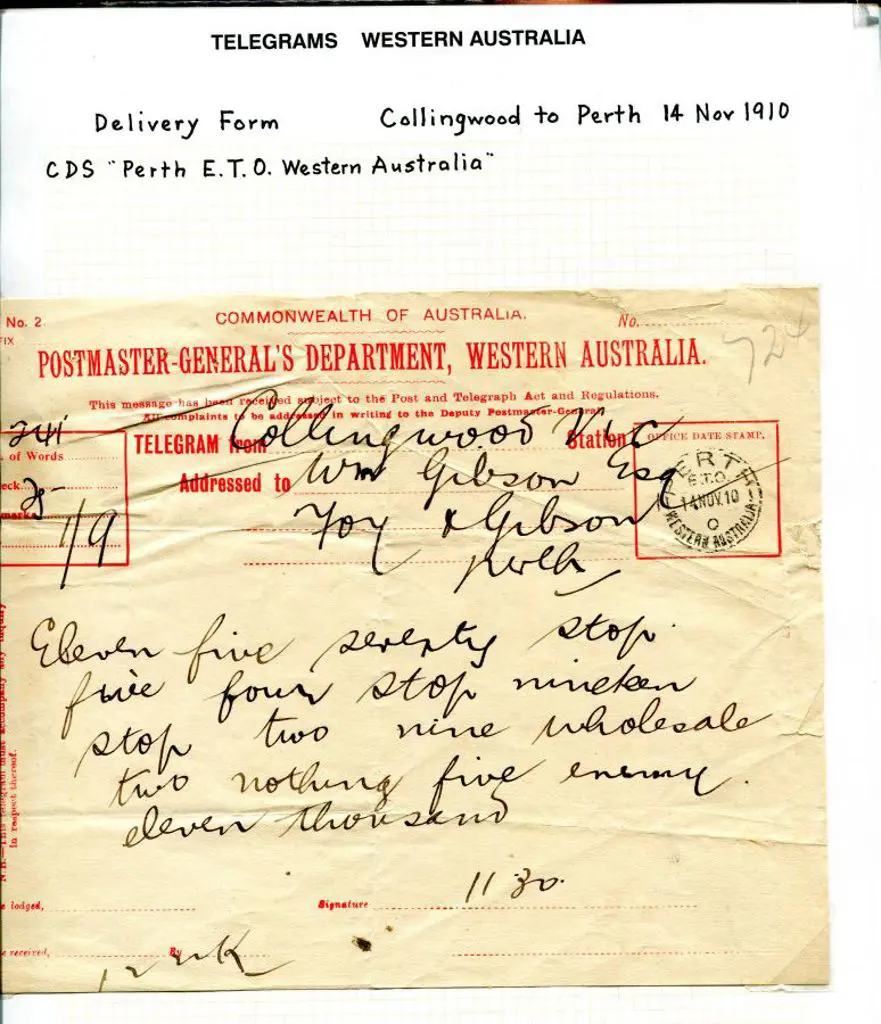 TELEGRAMS WESTERN AUSTRALIA
Delivery Form Collingwood to Perth 14 Nov 1910
CDS "Perth E.T.O. Western Australia"
No. 2
COMMONWEALTH OF AUSTRALIA.
No.
724
FIX
POSTMASTER-GENERAL'S DEPARTMENT, WESTERN AUSTRALIA.
This message has been received subject to the Post and Telegraph Act and Regulations.
All complaints to be addressed in writing to the Deputy Postmaster-General.
TELEGRAM from Collingwood Vic Station
of Words
Addressed to Wm Gibson Esq
eck
marks
1/9
Foy & Gibson
Perth
OFFICE DATE STAMP.
PERTH
E.T.O.
14 NOV. 10
WESTERN AUSTRALIA
Eleven five seventy stop
five four stop nineteen
stop two nine wholesale
two nothing five enemy.
eleven thousand
11 30
N.B.—This telegram must accompany any inquiry
in respect thereof.
e lodged,
Signature
e received,
By